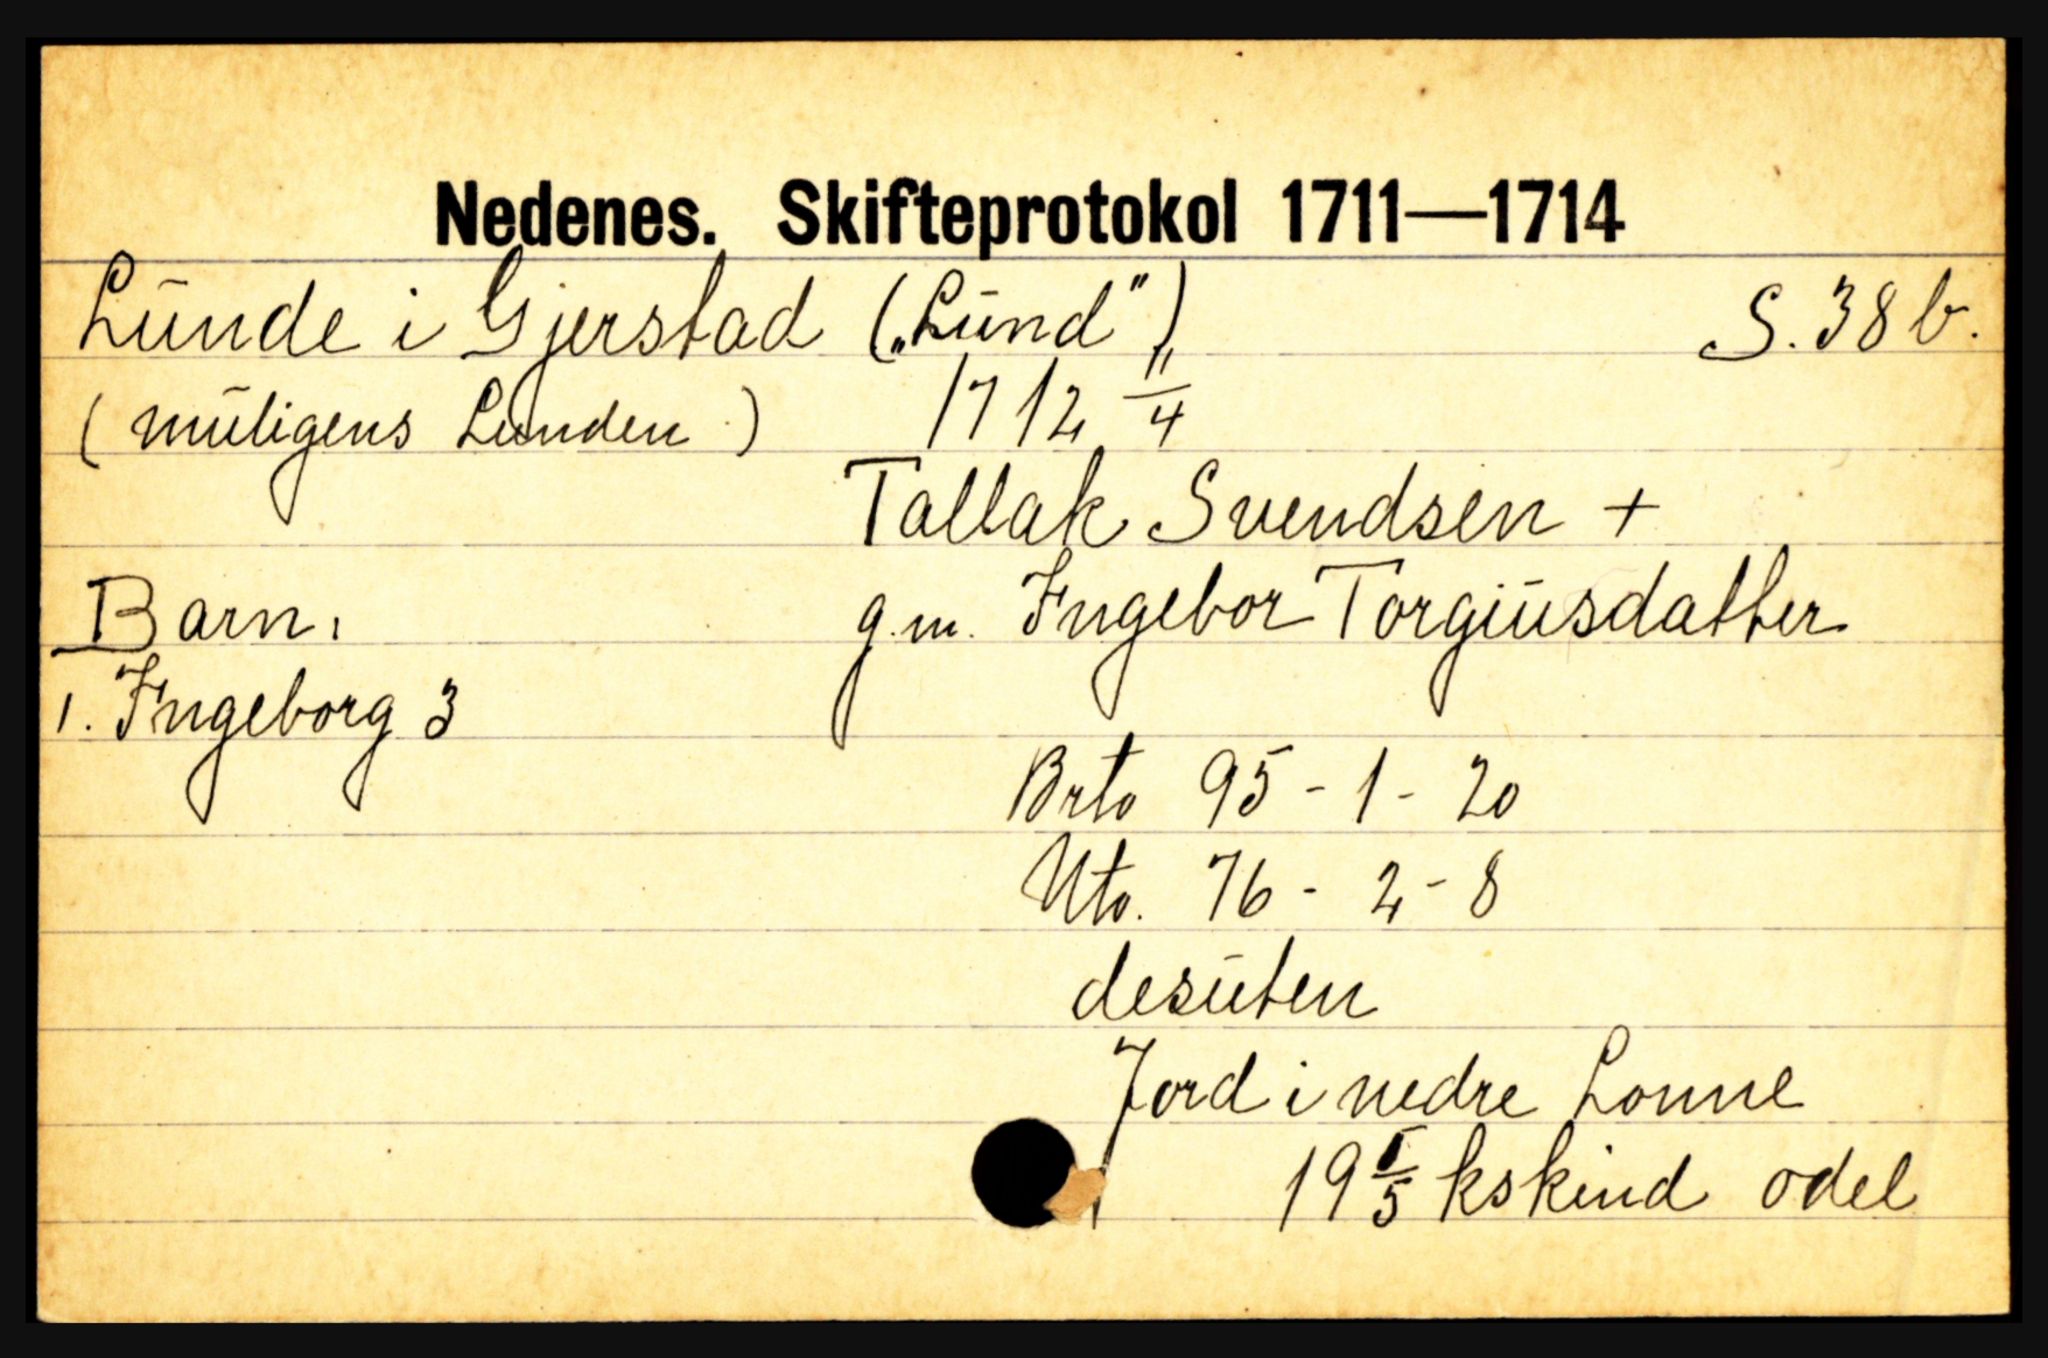 Nedenes. Skifteprotokol 1711—1714
Lunde i Gjerstad („Lund") S. 38 b.
(muligens Lunden) 1712 11/4
Tallak Svendsen +
Barn: g.m. Ingebor Torgiusdatter
1. Ingeborg 3
Brto 95 - 1 - 20
Nto. 76 - 2 - 8
desuten
Jord i nedre Lonne
19 1/5 kskind odel